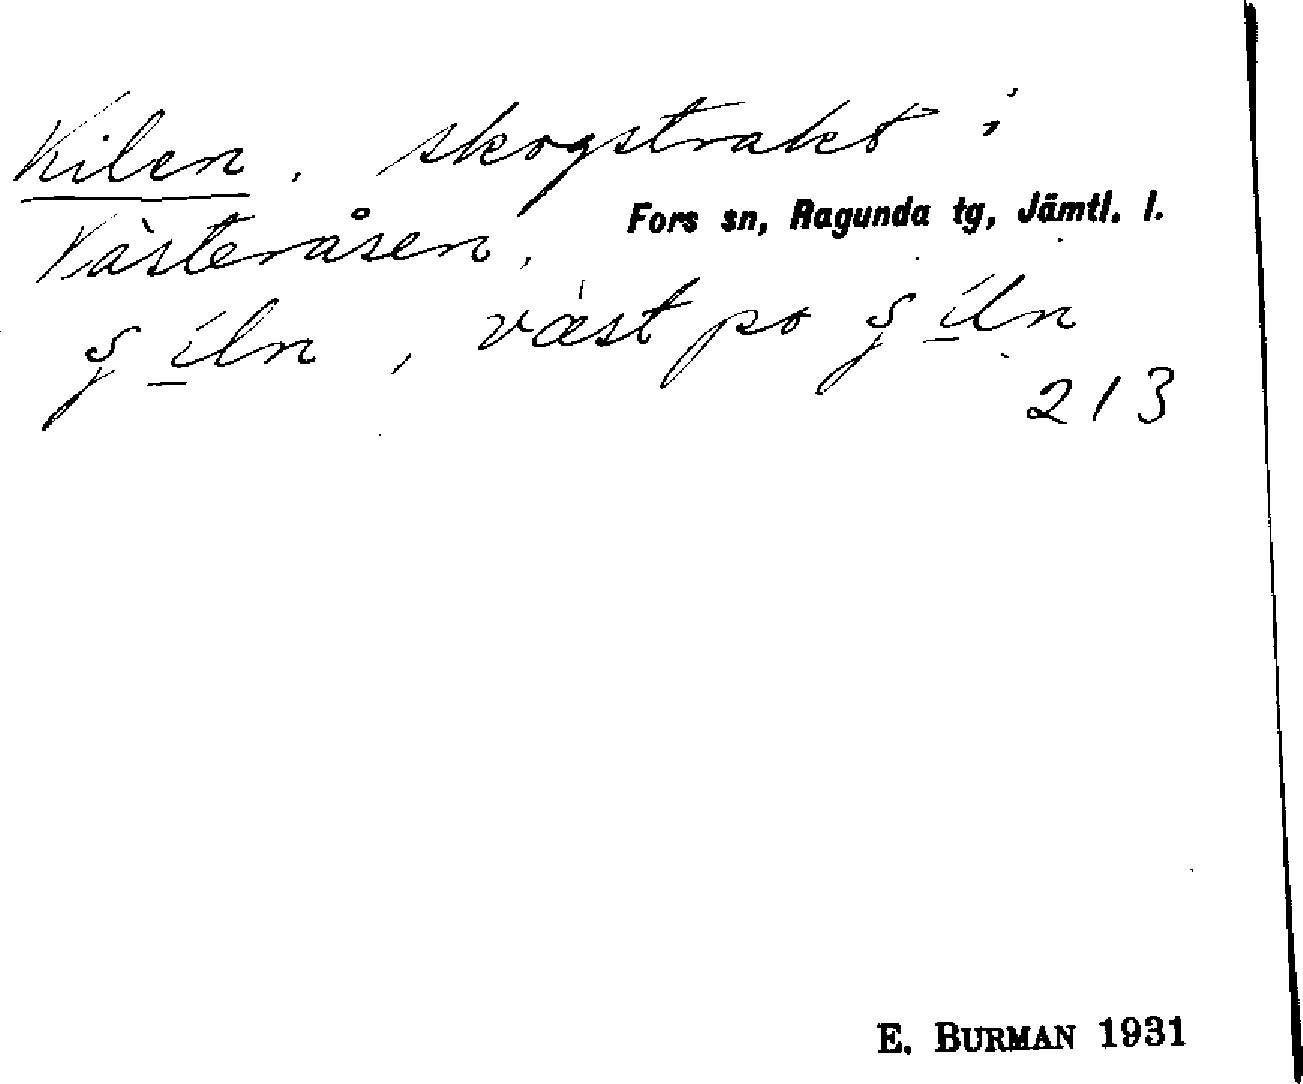 Kilen, skogstrakt i
Fors sn, Ragunda tg, Jämtl. l.
Västeråsen.
, väst po
213
E. BURMAN 1931